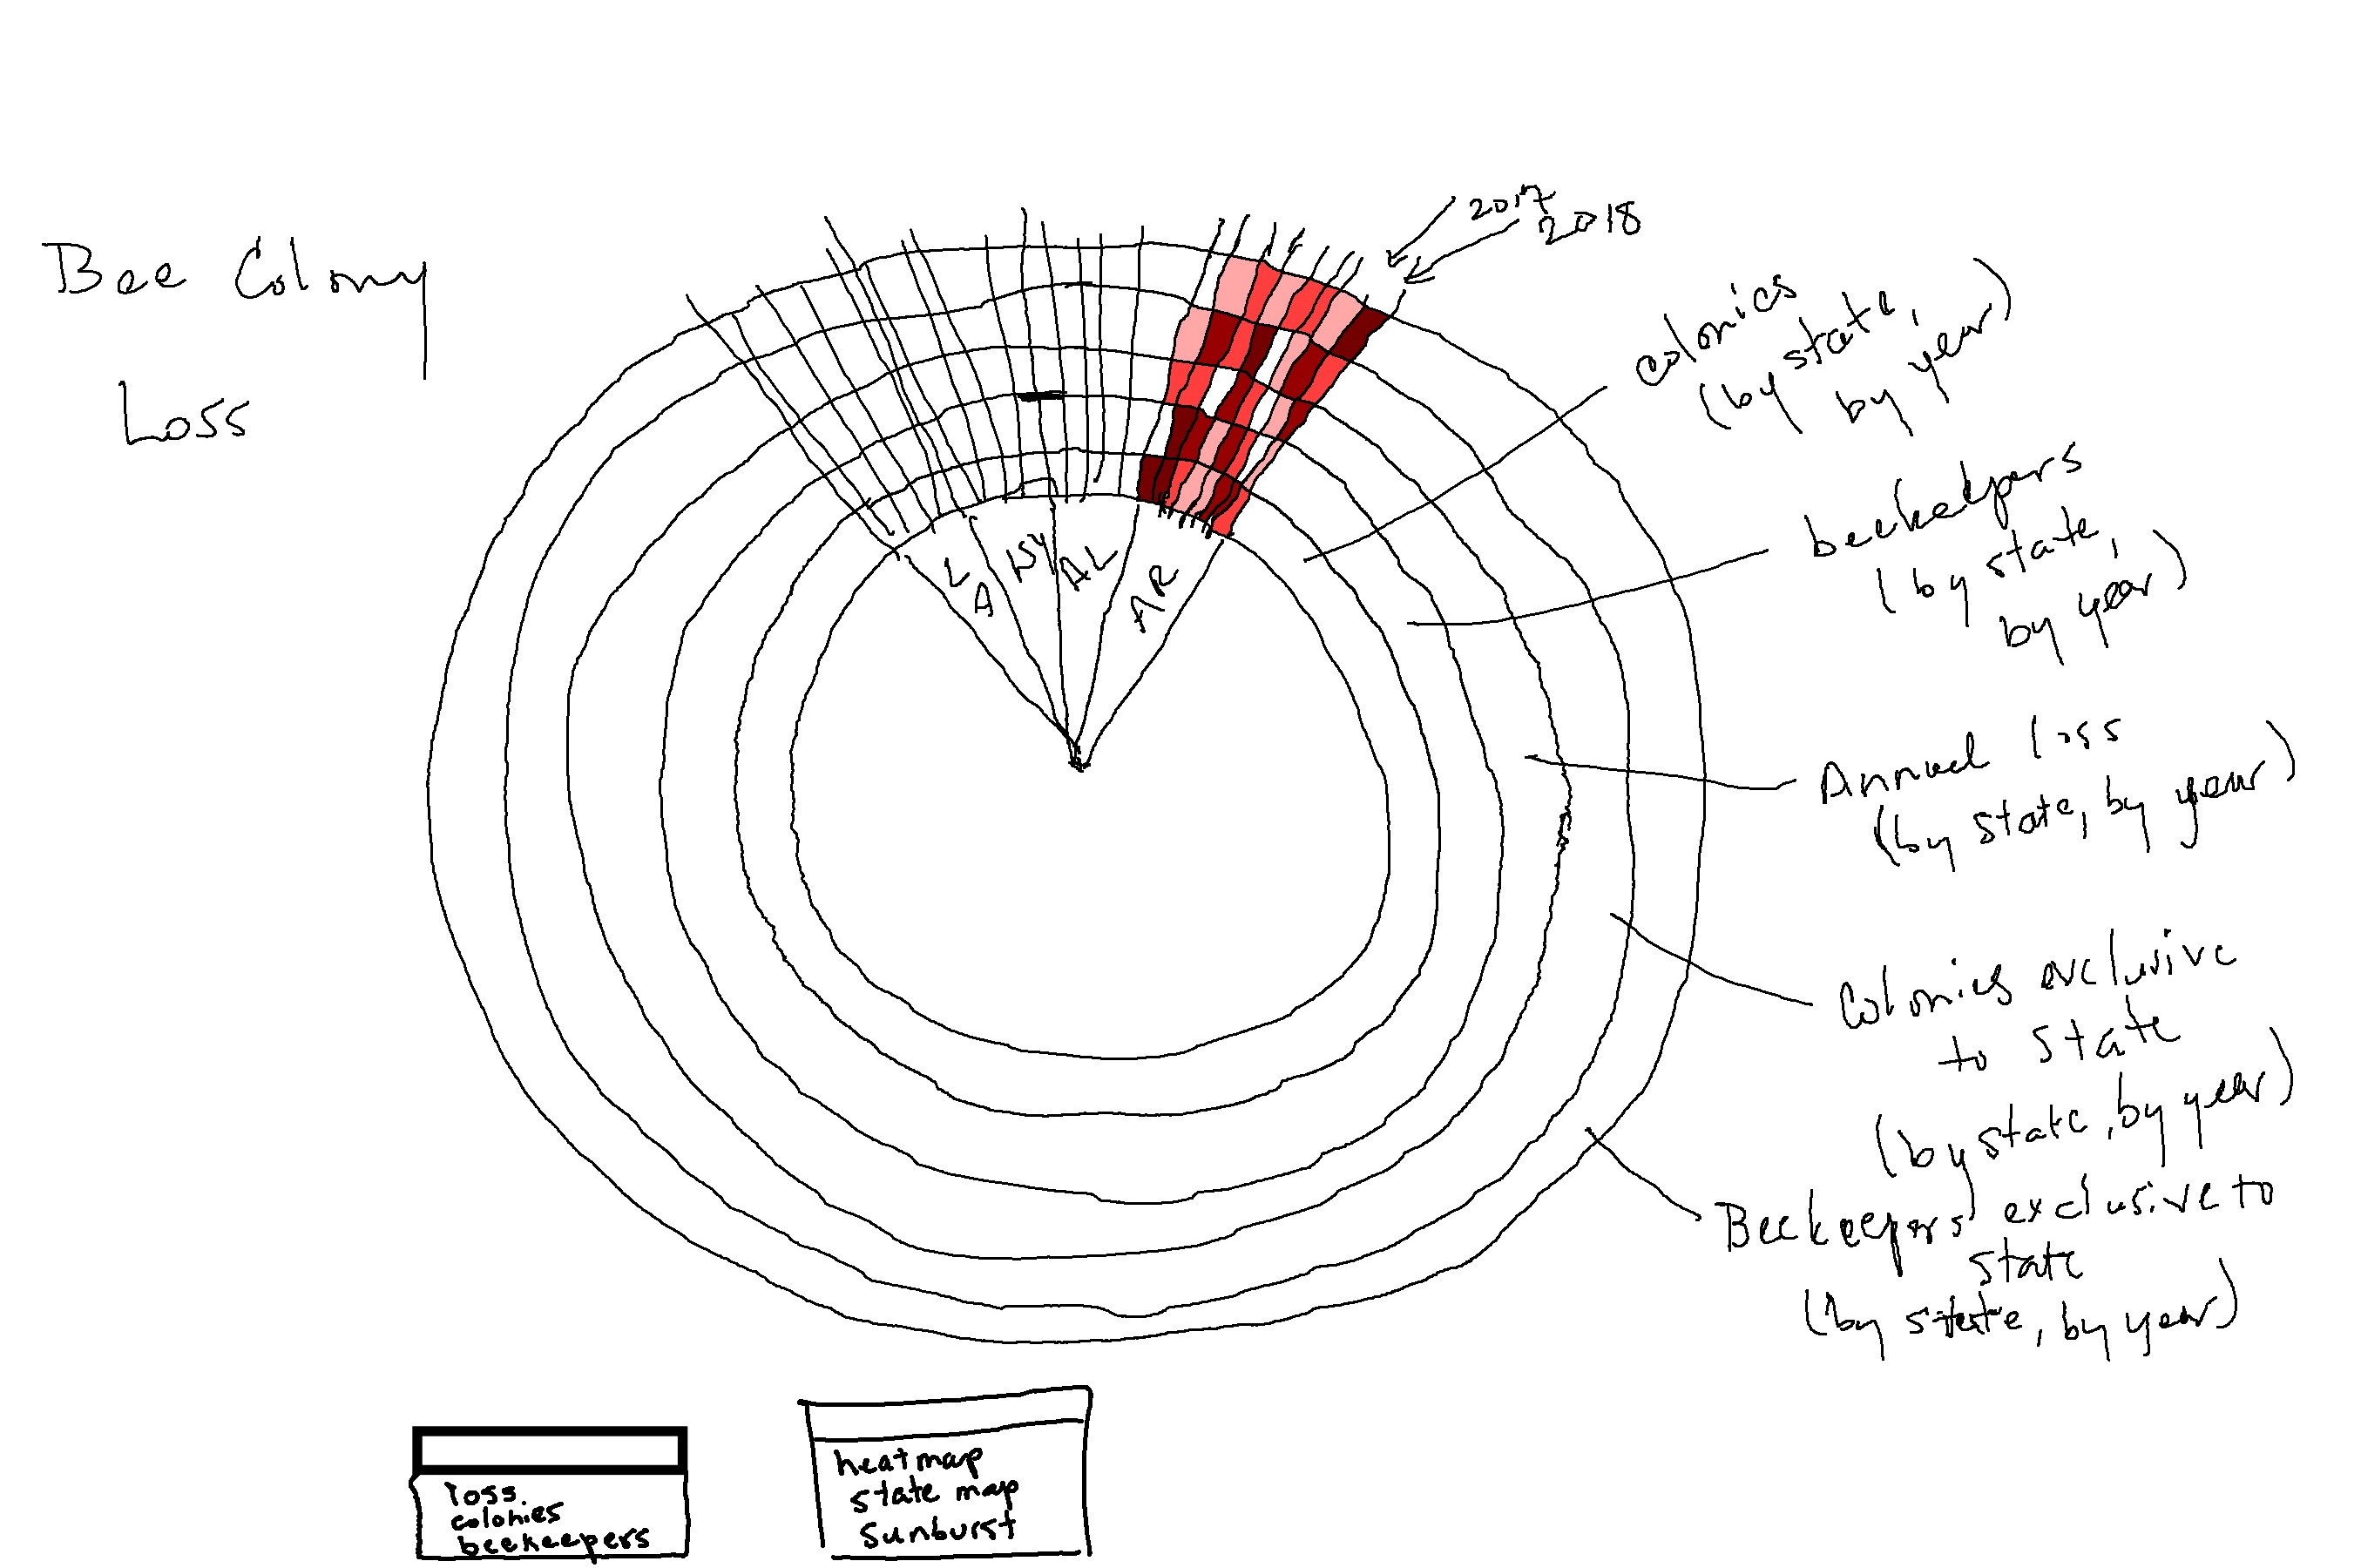 Bee Colony
Loss
2017
2018
colonies
(by state,
by year)
beekeepers
(by state,
by year)
Annual loss
(by state, by year)
Colonies exclusive
to state
(by state, by year)
Beekeepers exclusive to
state
(by state, by year)
LA
NY
AL
AR
loss.
colonies
beekeepers
heatmap
state map
sunburst